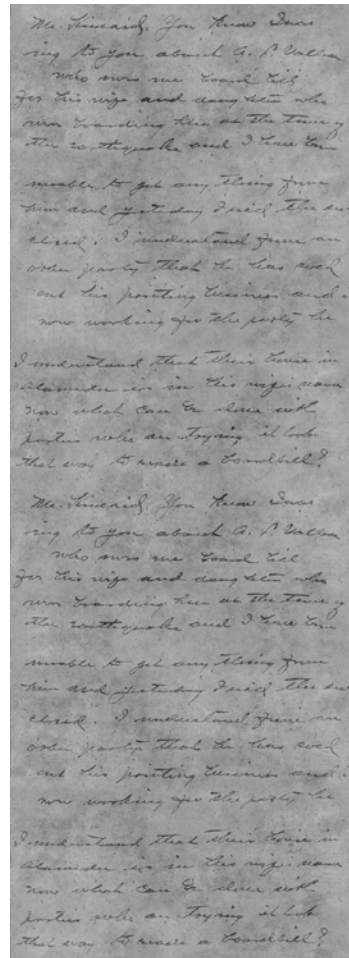 Mr. Kincaid, You know I was
ing to you about A. P.
who owes me board bill
for his wife and daughter who
were boarding here at the time of
the earthquake and I have been
unable to get any thing from
him and yesterday I
closed. I understand from an
other party that he has sold
out his printing business and
now working for the party he
I understand that their house in
Alameda is in his wife's name
now what can be done with
parties who are trying it looks
that way to evade a boardbill?
Mr. Kincaid, You know I was
ing to you about A. P.
who owes me board bill
for his wife and daughter who
were boarding here at the time of
the earthquake and I have been
unable to get any thing from
him and yesterday I
closed. I understand from an
other party that he has sold
out his printing business and
now working for the party he
I understand that their house in
Alameda is in his wife's name
now what can be done with
parties who are trying it looks
that way to evade a boardbill?